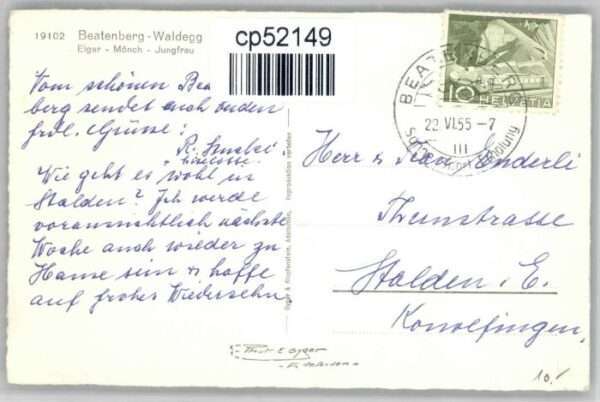 19102 Beatenberg - Waldegg
Eiger - Mönch - Jungfrau
cp52149
Vom schönen Bea
berg sendet auch
frdl. Grüsse!
R.
Wie geht es wohl in
Stalden? Ich werde
voraussichtlich nächste
Woche auch wieder zu
Hause sein & hoffe
auf frohes Wiedersehn
10 HELVETIA
BEATENBERG
22.VI.55-7
III
Herr & Frau Enderli
Thunstrasse
Stalden i. E.
Konolfingen.
10.-